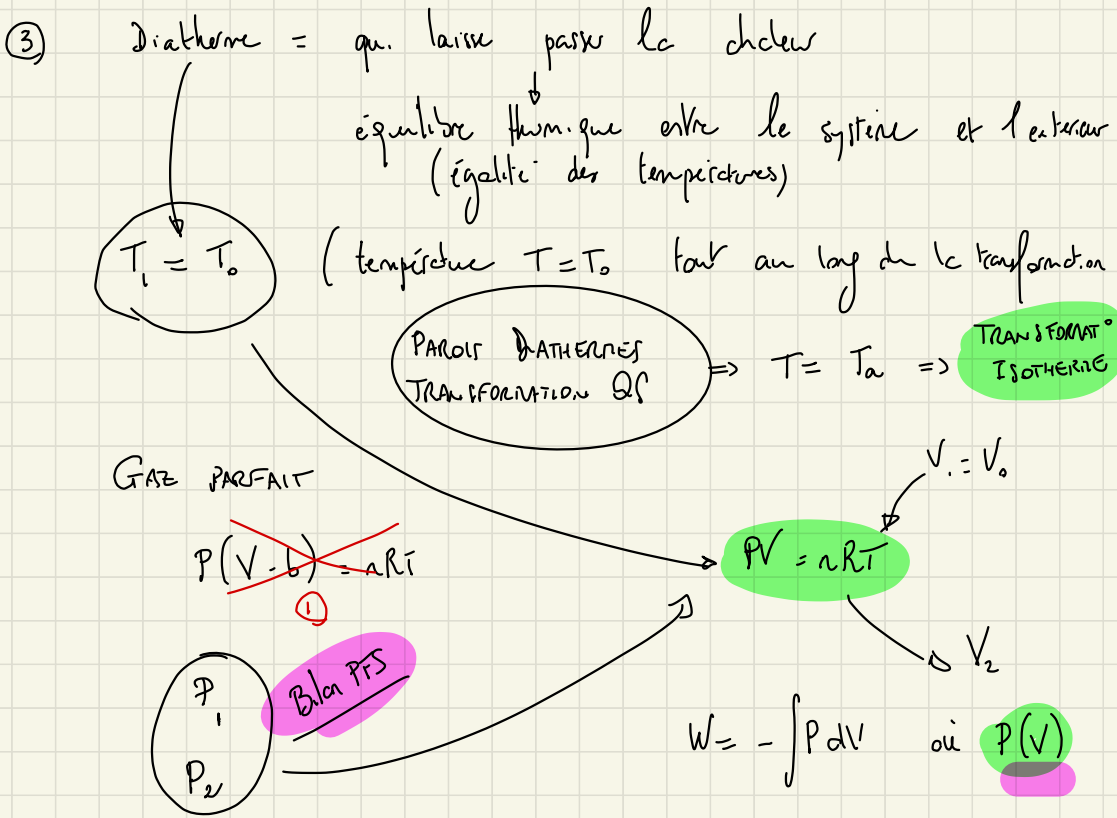 ③ Diatherme = qui laisse passer la chaleur
équilibre thermique entre le système et l'exterieur
(égalité des températures)
T₁ = T₀ (température T = T₀ tout au long de la transformation
PAROIS DIATHERMES
TRANSFORMATION QS => T = Ta => TRANSFORMAT°
ISOTHERME
GAZ PARFAIT
V₁ = V₀
P(V - b) = nRT
①
PV = nRT
P₁
Bilan PFS
V₂
P₂
W = - ∫ P dV où P(V)